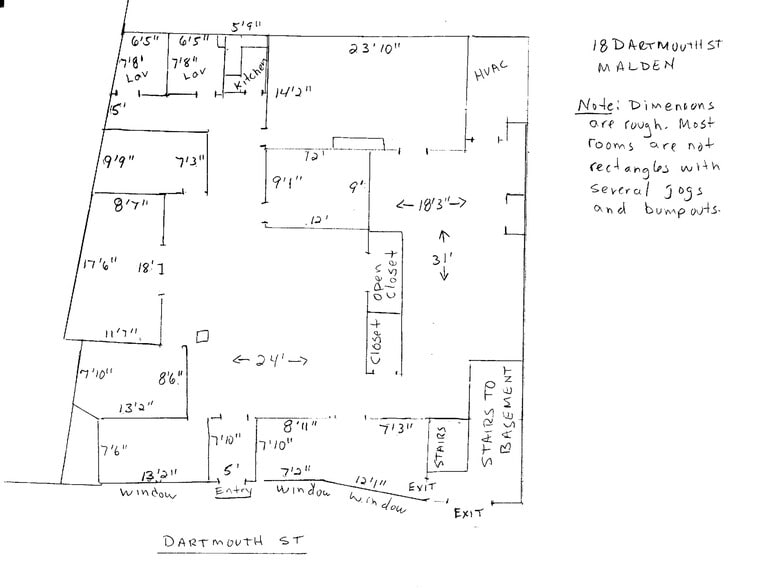 5'9"
6'5"
6'5"
23'10"
18 DARTMOUTH ST
MALDEN
7'8'
Lav
7'8"
Lav
Kitchen
HVAC
14'2"
5'
Note: Dimensions
are rough. Most
rooms are not
rectangles with
several jogs
and bumpouts.
9'9"
7'3"
12'
9'1"
9'
8'7"
18'3"
12'
17'6"
18'
31'
OPEN
CLOSET
11'7"
CLOSET
24'
7'10"
8'6"
STAIRS TO
BASEMENT
13'2"
8'11"
7'3"
7'6"
7'10"
7'10"
STAIRS
13'2"
5'
7'2"
12'1"
EXIT
Window
Entry
Window
Window
EXIT
DARTMOUTH ST